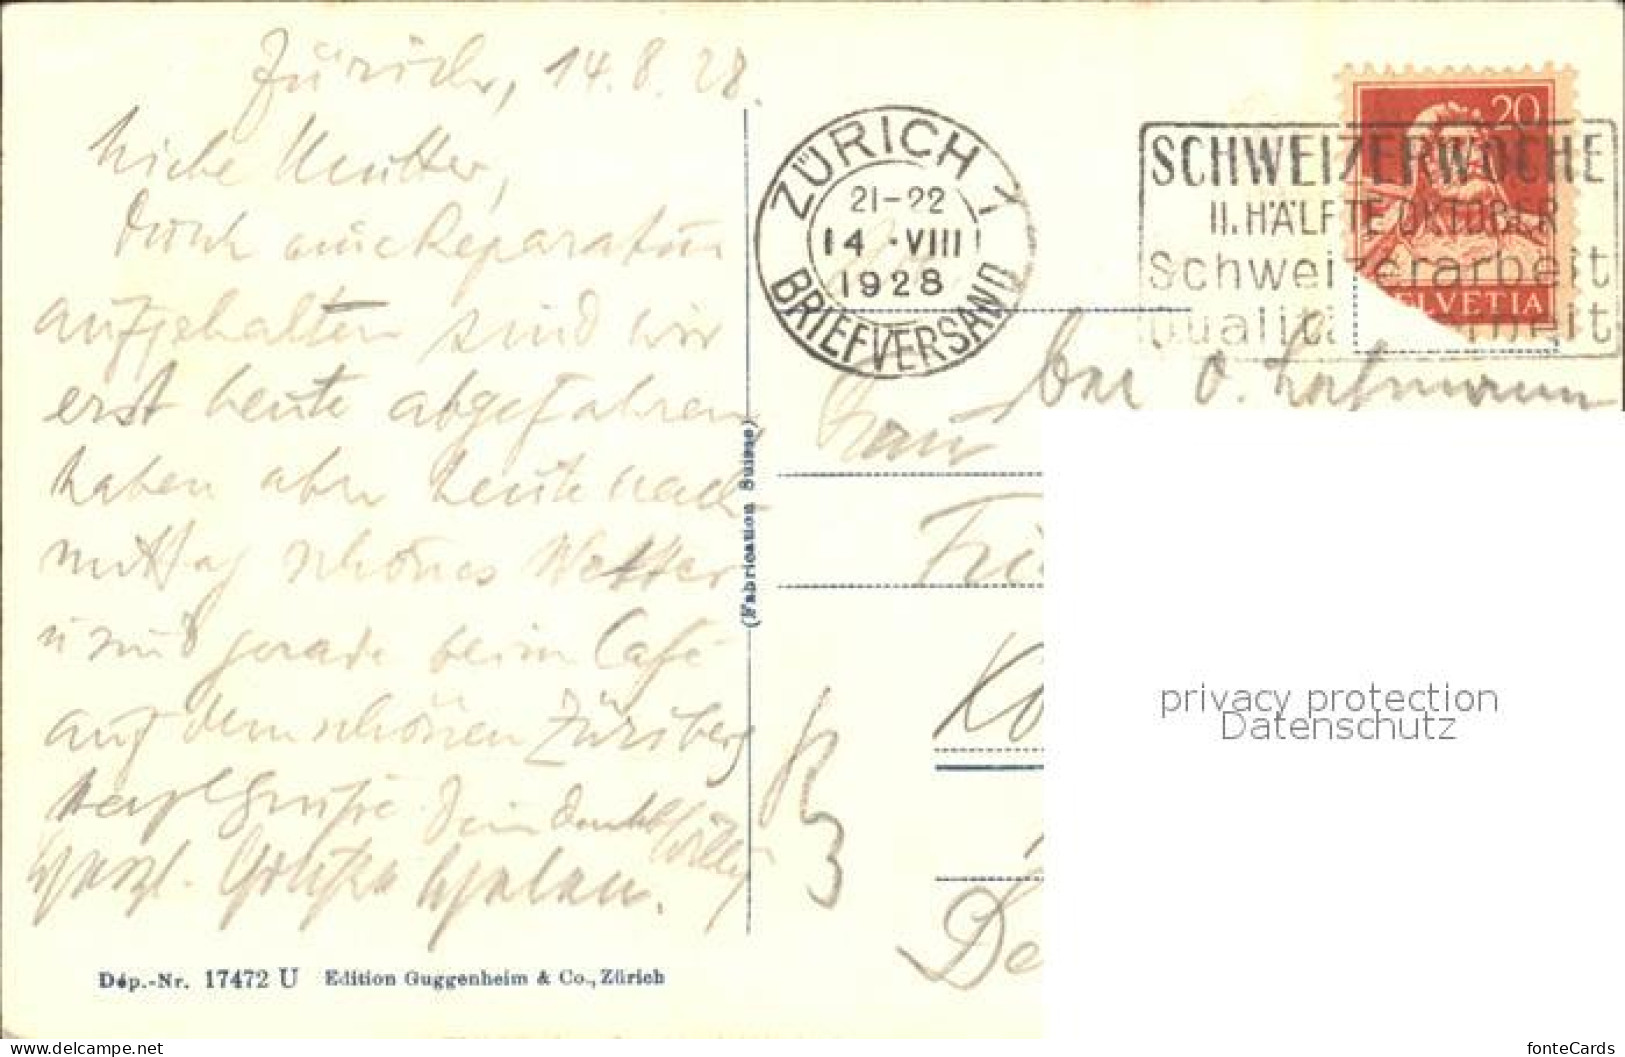 Zürich, 14.8.28.
Liebe Mutter,
Durch eine Reparatur
aufgehalten sind wir
erst heute abgefahren,
haben aber heute nach-
mittag schönes Wetter
u. sind gerade beim Café
auf dem schönen Züriberg
Herzl. Grüße Dein dankb. Willy
Herzl. Grüße
Dép.-Nr. 17472 U Edition Guggenheim & Co., Zürich
(Fabrication Suisse)
ZÜRICH 1
21-22
14.VIII
1928
BRIEFVERSAND
SCHWEIZERWOCHE
II. HÄLFTE OKTOBER
Schweizerarbeit
Qualitä beit
20
HELVETIA
bei O. Hofmann
Frau
3
De
privacy protection
Datenschutz
www.delcampe.net
fonteCards